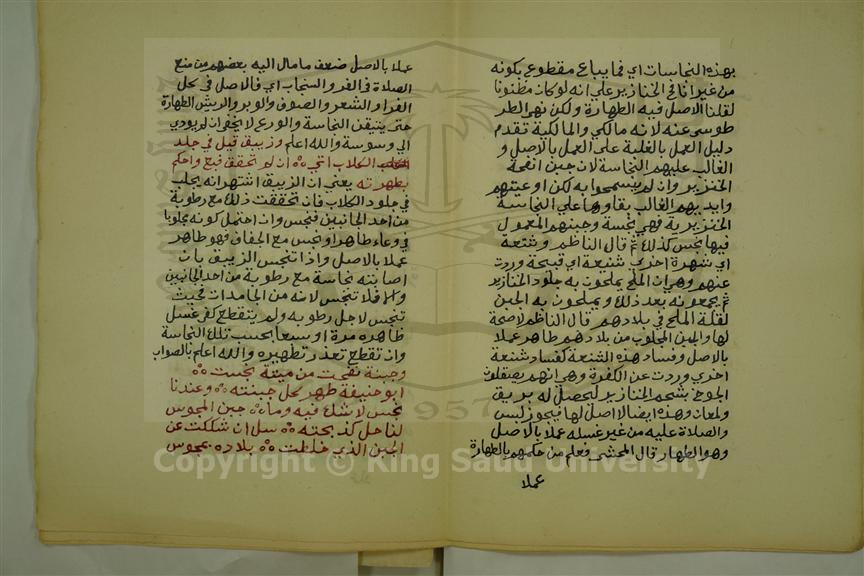 بهذه النجاسات اي فما يباع مقطوع بكونه
من غير انافي الخنازير علي انه لو كان مظنونا
لقلنا الاصل فيه الطهارة ولكن نهي الطر
طوسي عنه لانه مالكي والمالكية تقدم
دليل العمل بالغلبة على العمل بالاصل و
الغالب عليهم النجاسة لان جبن انفحة
الخنزير وان لم يسموا به لكن اوعيتهم
وايديهم الغالب بقاوها علي النجاسة
الخنزيرية فهي نجسة وجبنهم المعمول
فيها نجس كذلك ثم قال الناظم وشنعة
اي شهرة اخري شنيعة اي قبيحة وردت
عنهم وهي ان الملح يملحون به جلود الخنازير
ثم يجمعونه بعد ذلك ويملحون به الجبن
لقلة الملح في بلادهم قال الناظم لا صحة
لها والجبن المجلوب من بلادهم طاهر عملا
بالاصل وفساد هذه الشنعة كفساد شنعة
اخري وردت عن الكفرة وهي انهم يصقلون
الجوخ بشحم الخنازير ليحصل له بريق
ولمعان وهذه ايضا لا اصل لها فيجوز لبس
والصلاة عليه من غير غسله عملا بالاصل
وهو الطهار قال المحشي فعلم من حكمهم بالطهارة
عملا
عملا بالاصل ضعف ما مال اليه بعضهم من منع
الصلاة في الفر والسنجاب اي فالاصل في كل
الفرا والشعر والصوف والوبر والريش الطهارة
حتى يتيقن النجاسة والورع لا يخفي ان لم يودي
الي وسوسة والله اعلم وزيبق قيل في جلد
الكلاب اتي ٥٥ ان لم تحقق فبع واحكم
بطهرته يعني ان الزيبق اشتهر انه يجلب
في جلود الكلاب فان تحققت ذلك مع رطوبة
من احد الجانبين فنجس وان احتمل كونه مجلوبا
في وعاء طاهر او نجس مع الجفاف فهو طاهر
عملا بالاصل واذا تنجس الزيبق بان
اصابته نجاسة مع رطوبة من احد الجانبين
والا فلا تنجس لانه من الجامدات فحيث
تنجس لاجل رطوبه ولم ينقطع كفي غسل
ظاهره مرة او سبعا بحسب تلك النجاسة
وان تقطع تعذر تطهيره والله اعلم بالصواب
وجبنة نفحت من ميتة نجست ٥٥
ابو حنيفة طهر كل جبنته ٥٥ وعندنا
نجس لا شك فيه وما ٥٥ جبن المجوس
لنا حل كذبحته ٥٥ سل ان شككت عن
الجبن الذي خلطت ٥٥ بلاده بمجوس